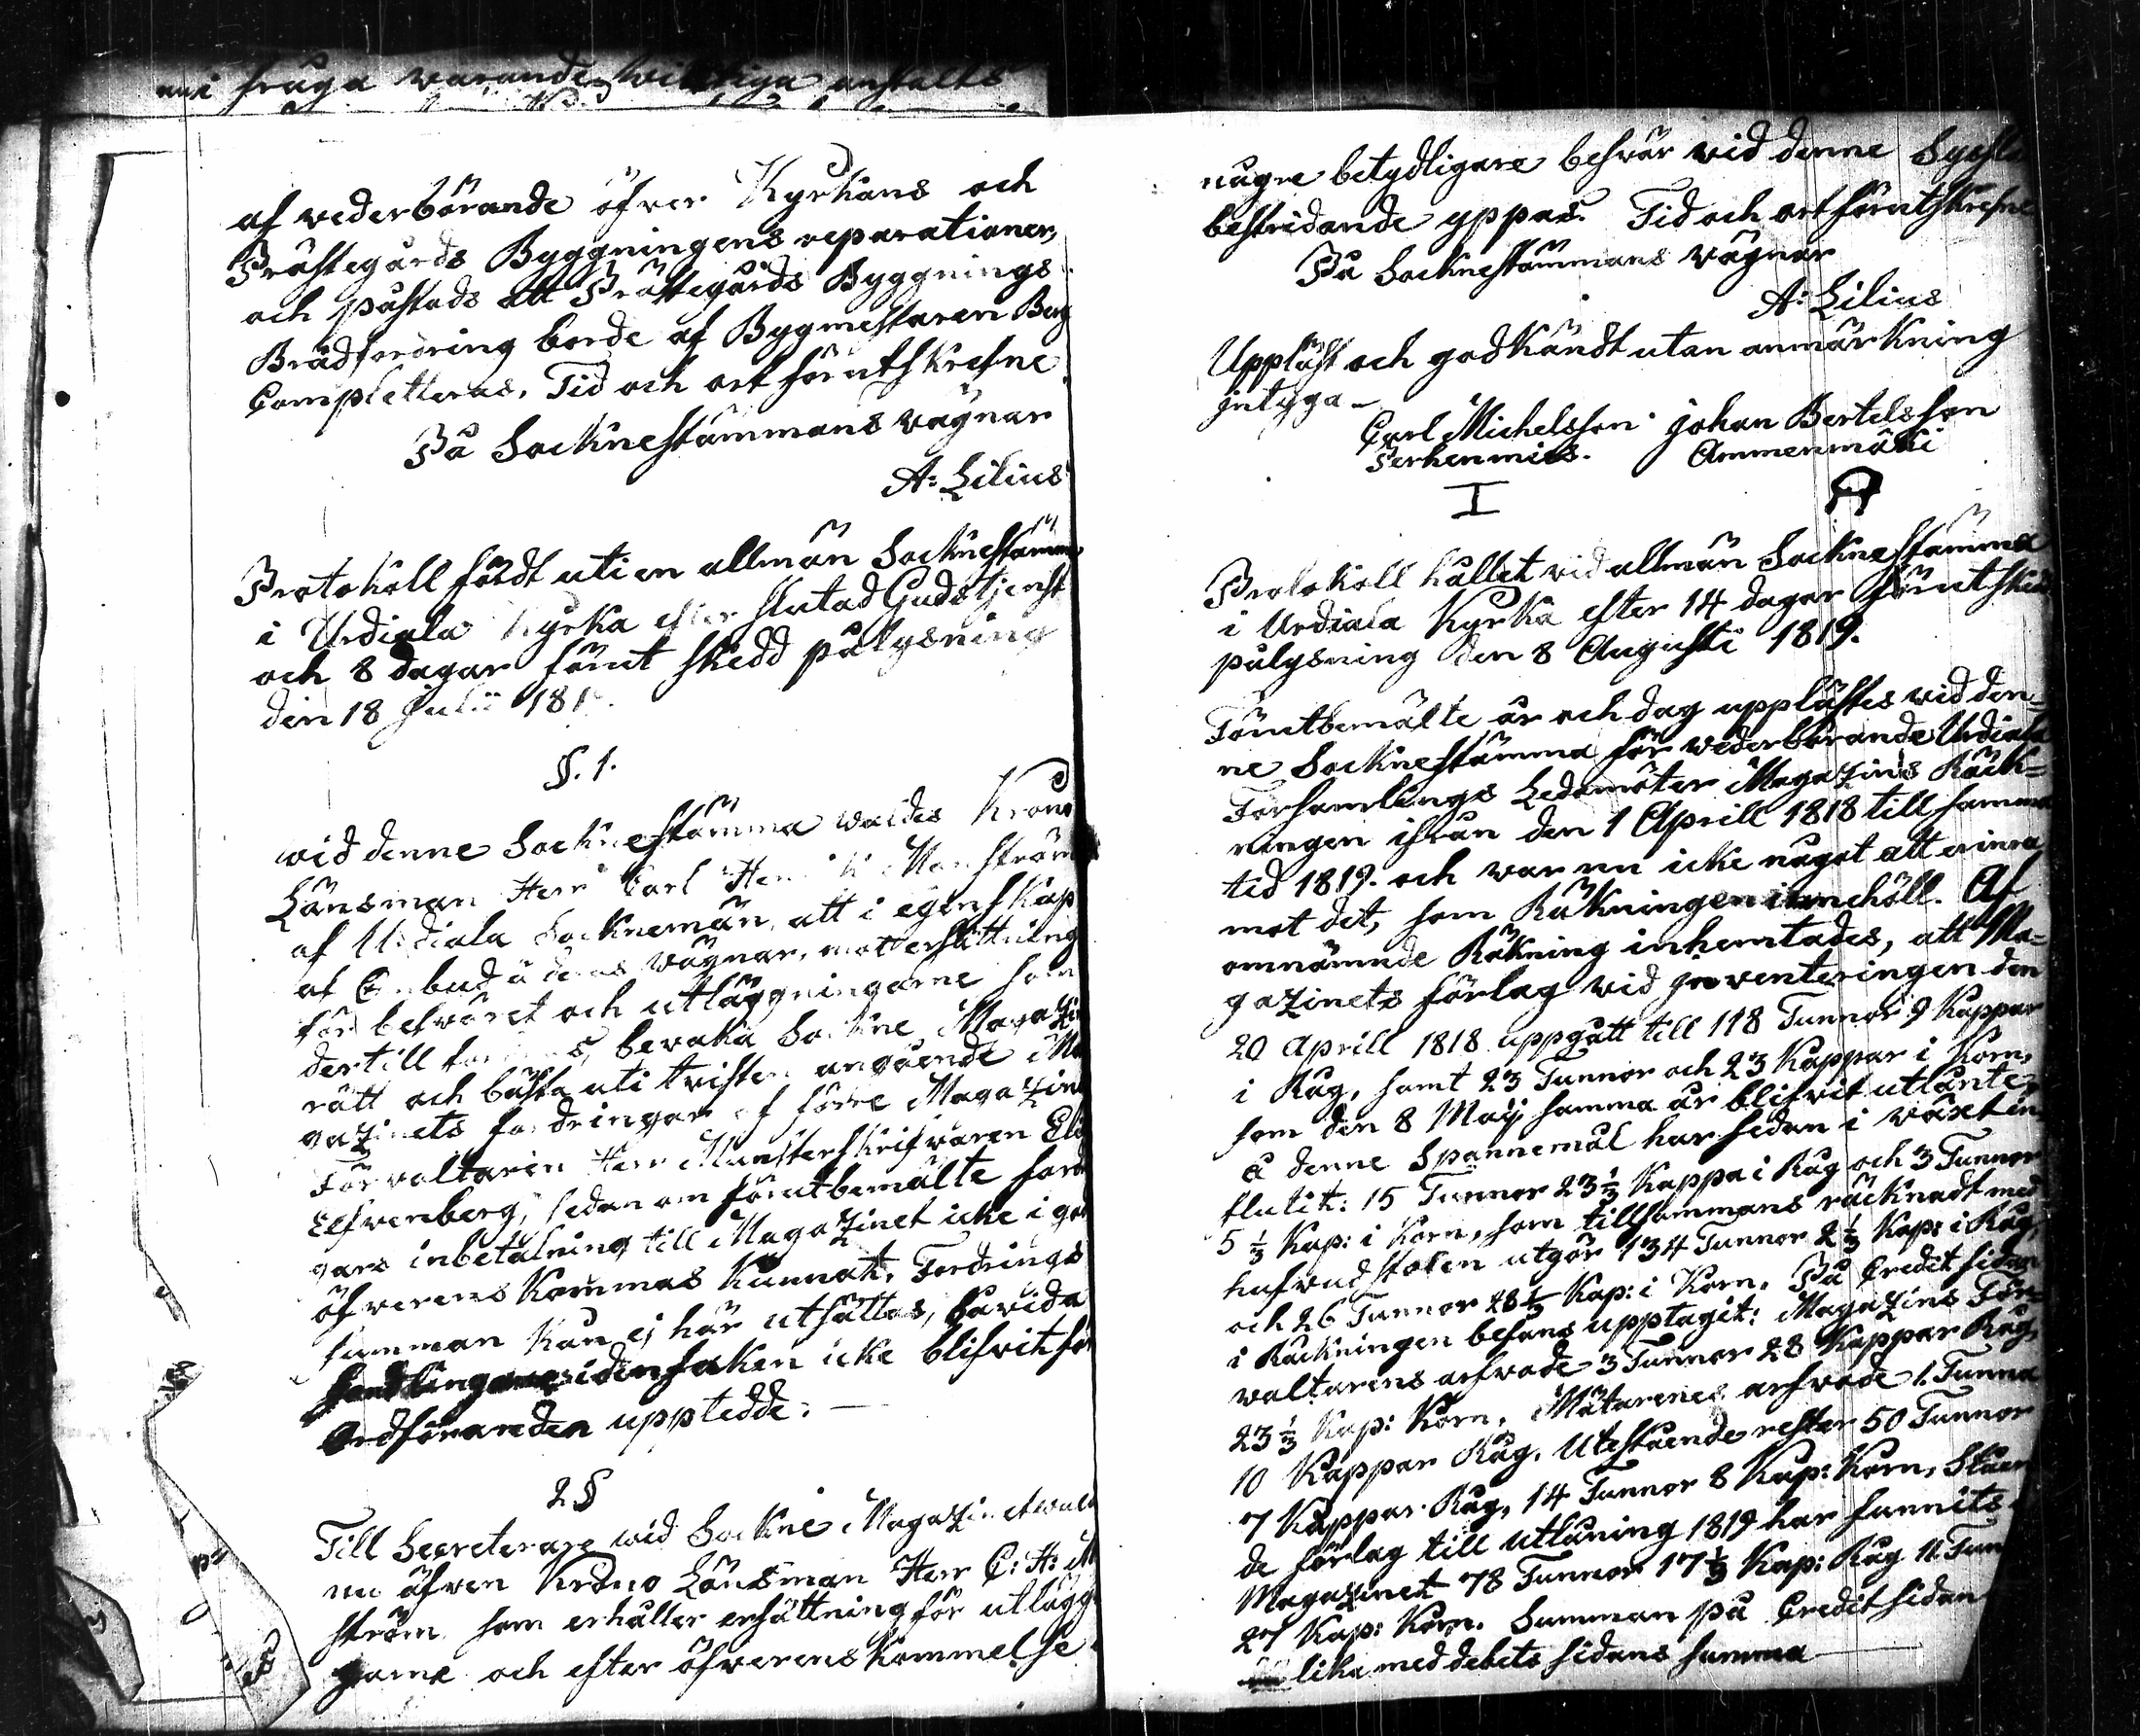 fråga warande wicktiga anstalts
af vederbörande öfver Kyrkans och
Prästegårds Byggningens reparationer,
och påstods att Prästegårds Byggnings
Brädfordring borde af Bygmestaren Berg
Completteras. Tid och ort förutskrefne.
På Socknestämmans vägnar
A: Lilius
Protokoll fördt uti en allmän Socknestämma
i Urdiala Kyrka efter slutad Gudstjenst
och 8 dagar förut skedd pålysning
den 18 Julii 181
§. 1.
wid denne Socknestämma waldes Krono
Länsman Herr Carl Henrik Munström
af Urdiala Socknemän, att i egenskap
af Ombud å deras vägnar, mot ersättning
för besväret och utläggningarne som
dertill fordras, bevaka Sockne Magazins
rätt och bästa uti tvisten angående Ma
gazinets fordringar af förre Magazins
Förvaltaren Herr Munsterskrifvaren Elias
Elfvenberg, sedan om förutbemälte fordrin
gars inbetalning till Magazinet icke i godo
öfverenskommas kunnat. Fordrings
summan kan ej här utsättas, såvida
handlingarne i den saken icke blifvit för
Ordföranden uppledde. —
2 §
Till Secreterare wid Sockne Magazinet wald
nu äfven Krono Länsman Herr C: H: Mun
ström som erhåller ersättning för utlägg
garne och efter öfverenskommelse
någre betydligare besvär vid denne Sysslas
bestridande yppas. Tid och ort förutskrefne
På Socknestämmans vägnar
A: Lilius
Uppläst och godkändt utan anmärkning
intyga —
Carl Michelsson Johan Bertelsson
Perhenmies. Ammenmäki
I
Protokoll hållet vid allmän Socknestämma
i Urdiala Kyrka efter 14 dagar förut skedd
pålysning den 8 Augusti 1819.
Förutbemälte år och dag upplästes vid den=
ne Socknestämma för wederbörande Urdiala
Församlings Ledamöter Magazins Räck=
ningen ifrån den 1 Aprill 1818 till samma
tid 1819. och war nu icke något att erinra
mot det, som Räkningen innehöll. Af
omnämnde Räkning inhemtades, att Ma=
gazinets förlag vid inventeringen den
20 Aprill 1818 uppgått till 118 Tunnor 9 Kappar
i Råg, samt 23 Tunnor och 23 Kappar i Korn,
som den 8 Maij samma år blifvit utlånte,
å denne Spannemål har sedan i växt in=
flutit: 15 Tunnor 23 1/3 Kappa i Råg och 3 Tunnor
5 1/3 Kap: i Korn, som tillsammans räcknadt med
hufvudstolen utgör 134 Tunnor 2 1/3 Kap: i Råg,
och 26 Tunnor 28 1/3 Kap: i Korn. På Credit sidan
i Räckningen befans upptagit: Magazins För=
waltarens arfvode 3 Tunnor 28 Kappar Råg,
23 1/3 Kap: Korn, Mätarenes arfvode 1. Tunna
10 Kappar Råg, Utestående rester 50 Tunnor
7 Kappar Råg, 14 Tunnor 8 Kap: Korn, Ståen
de förlag till utlåning 1819 har funnits i
Magazinet 78 Tunnor 17 1/3 Kap: Råg 11 Tun
27 Kap: Korn. Summan på Credit sidan
lika med debets sidans summa —